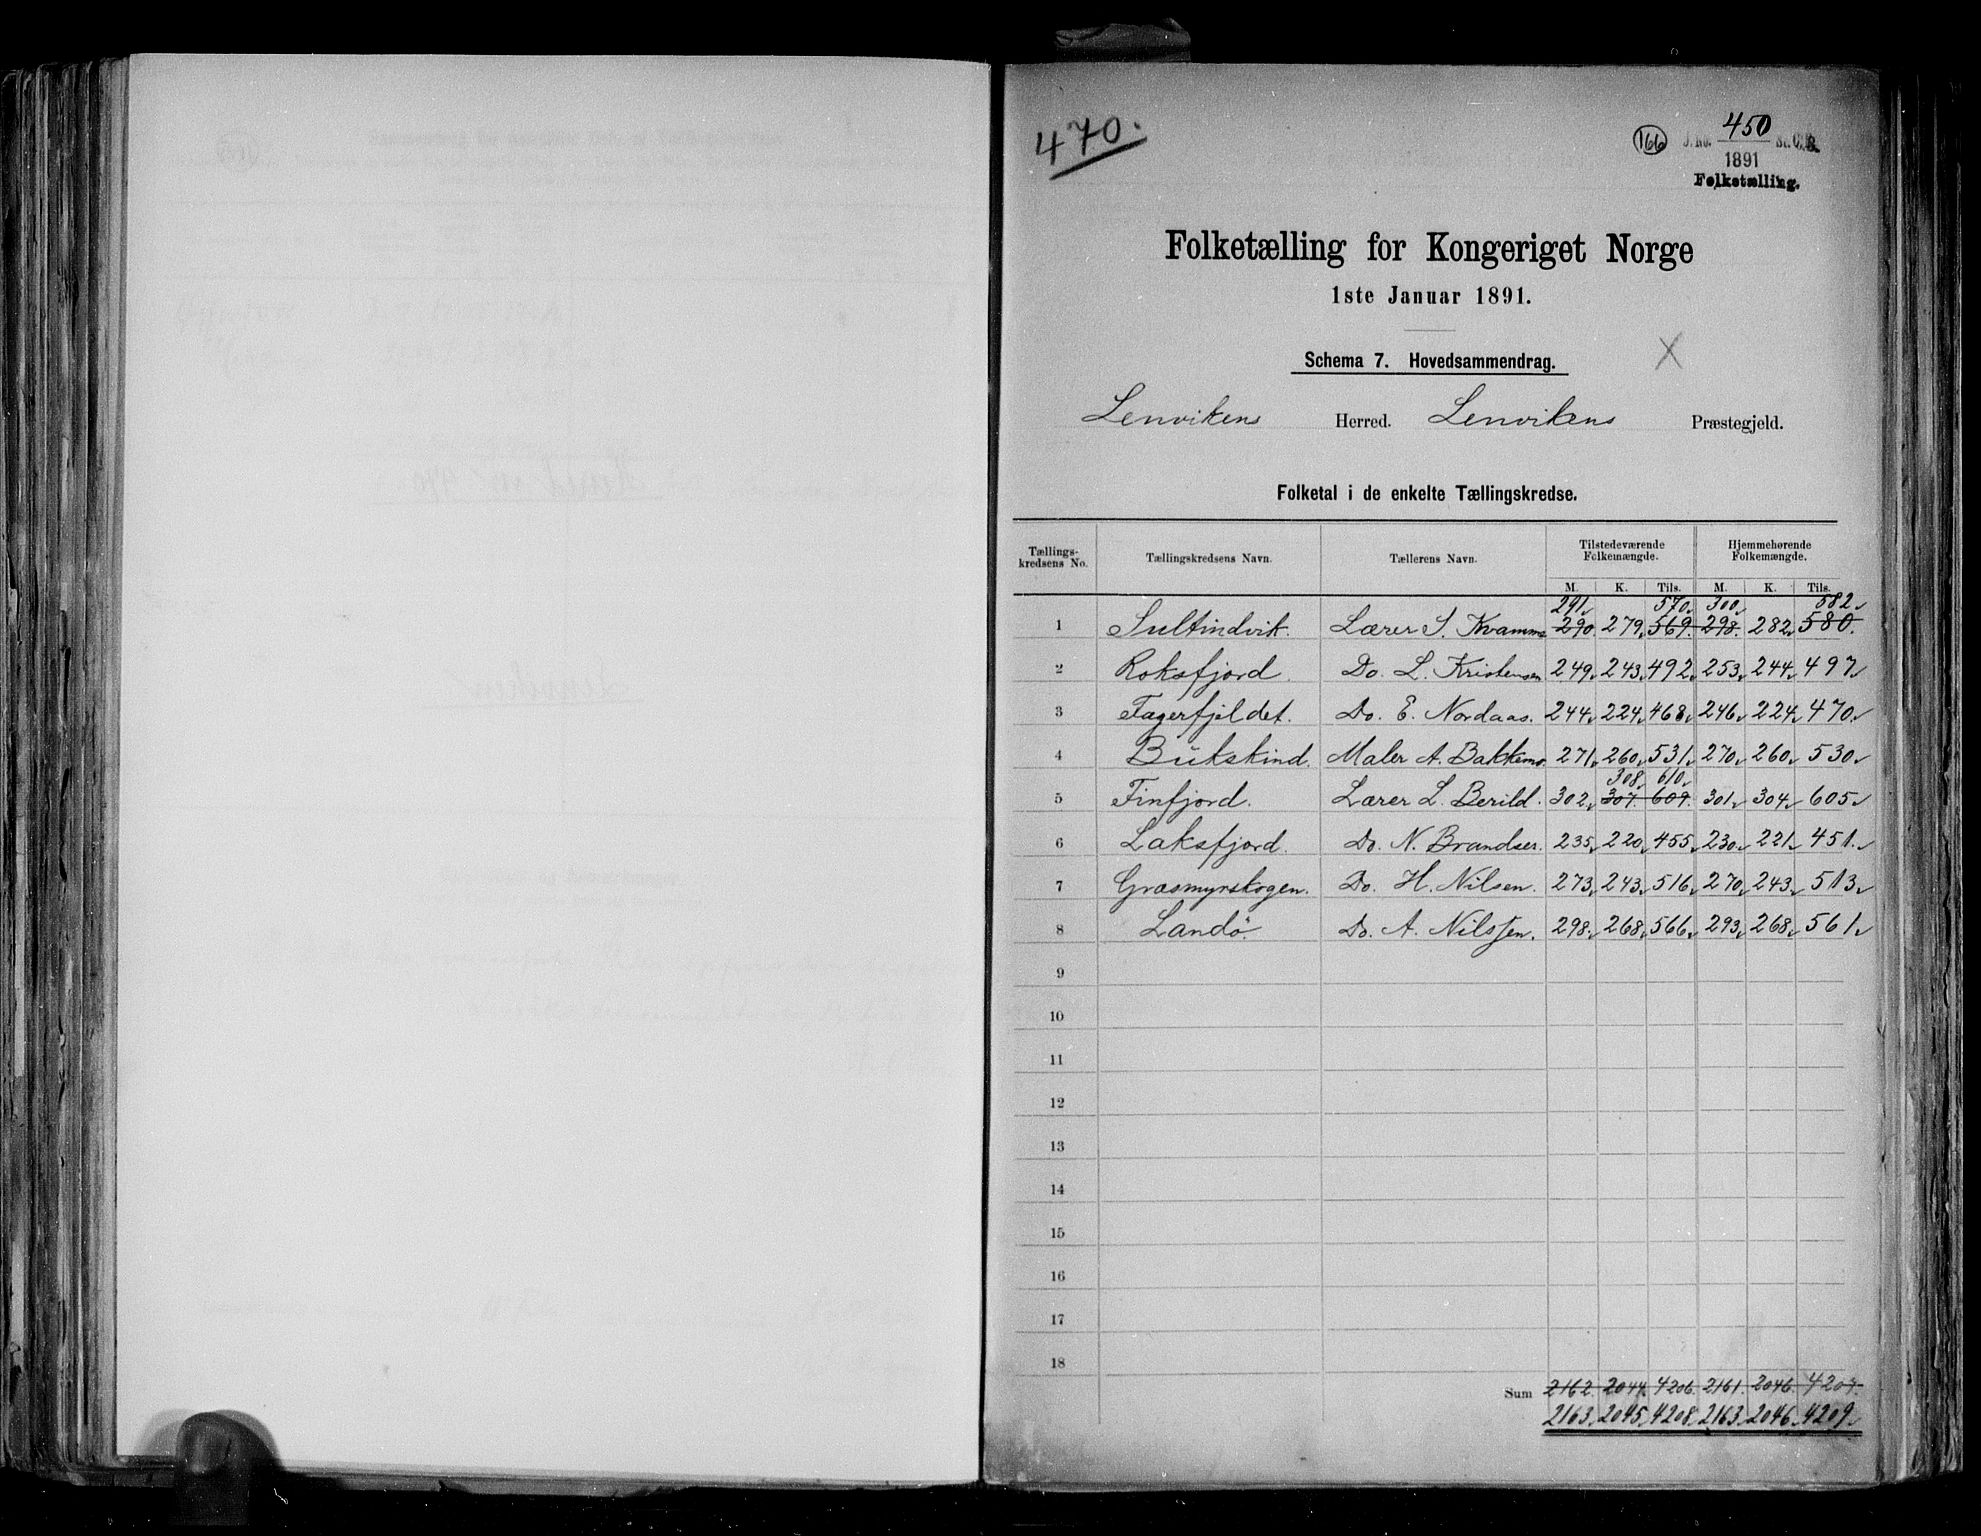 470.
166
J. No. 450 St. C. B.
1891
Folketælling.
Folketælling for Kongeriget Norge
1ste Januar 1891.
Schema 7. Hovedsammendrag.
X
Lenvikens Herred. Lenvikens Præstegjeld.
Folketal i de enkelte Tællingskredse.
Tællings-kredsens No. Tællingskredsens Navn. Tællerens Navn. Tilstedeværende Folkemængde. Hjemmehørende Folkemængde.
M. K. Tils. M. K. Tils.
291 570 300 582
1 Sultindvik. Lærer S. Kvamme 290 279 569 298 282 580
2 Roksfjord. Do. L. Kristensen 249 243 492 253 244 497
3 Fagerfjeldet. Do. E. Nordaas. 244 224 468 246 224 470
4 Bukskind. Maler A. Bakkemo. 271 260 531 270 260 530
308 610
5 Finfjord. Lærer L. Berild. 302 307 609 301 304 605
6 Laksfjord. Do. N. Brandser. 235 220 455 230 221 451
7 Græsmyrskogen. Do. H. Nilsen. 273 243 516 270 243 513
8 Landö. Do. A. Nilssen. 298 268 566 293 268 561
9
10
11
12
13
14
15
16
17
18
Sum 2162 2044 4206 2161 2046 4207
2163 2045 4208 2163 2046 4209